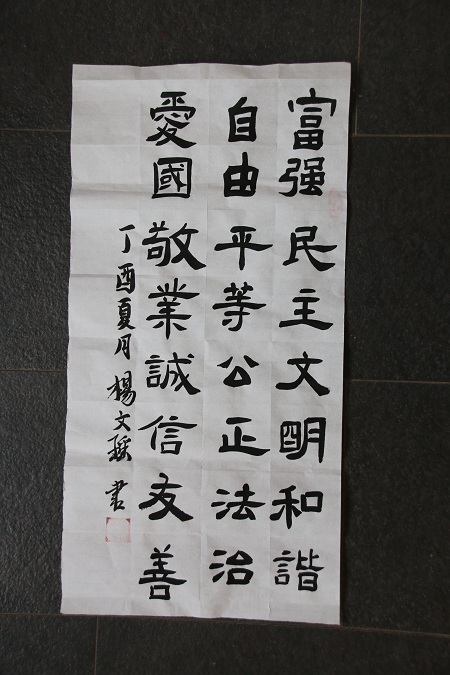 富强民主文明和諧
自由平等公正法治
愛國敬業誠信友善
丁酉夏月楊文瑤書